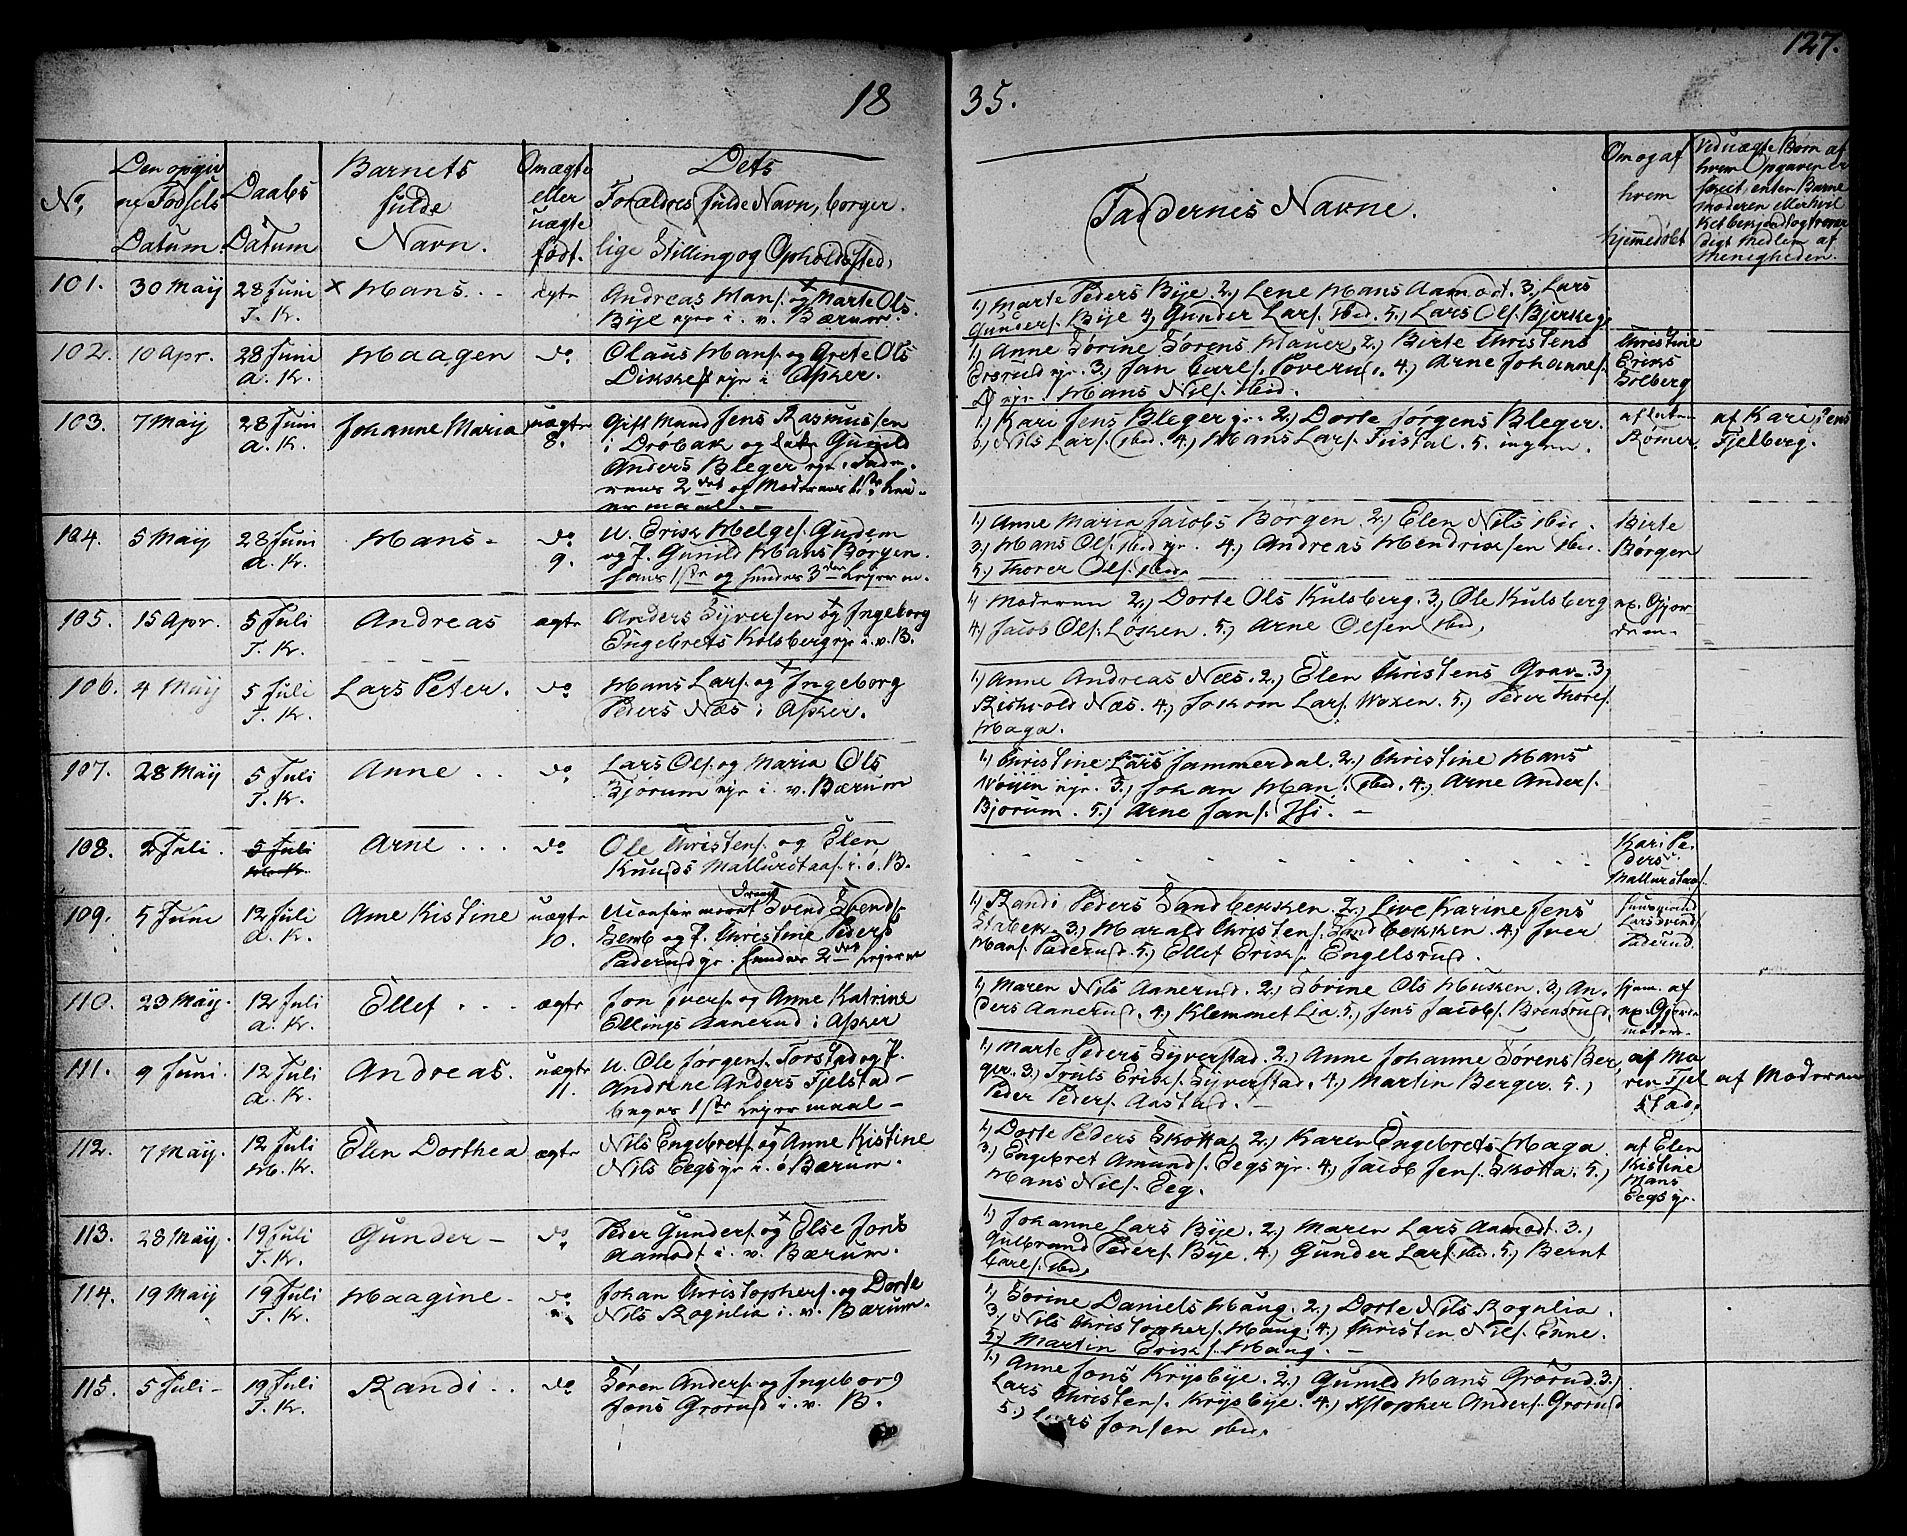 127.
18 35.
No,
Den opgiv
ne Fødsels
Datum.
Daabs
Datum
Barnets
fulde
Navn.
Om ægte
eller
uægte
født.
Dets
Forældres fulde Navn, borger.
lige Stilling og Opholdssted,
Faddernes Navne.
Om og af
hvem
hjemmedøbt
Ved uægte Børn af
hvem Opgaven er
skeet, enten Barne
moderen eller hvil
ket bekjendt og trovær
digt Medlem af
Menigheden.
101. 30 May 28 Juni T. K. × Hans ægte
Andreas Hans. og Marte Ols
Bye eyer i v. Bærum.
1.) Marte Peders Bye. 2.) Lene Hans Aamodt. 3.) Lars
Gunders. Bye 4.) Gunder Lars. ibid. 5.) Lars Ols.
102. 10 Apr. 28 Juni A. K. Haagen do
Olaus Hans. og Grete Ols
eyr i Asker.
1.) Anne Sørine Sørens Hauer, 2.) Birte Christens
eyr. 3.) Jan Carls. 4.) Arne Johannes.
eyr. Hans Nils. ibid.
Christine
Eriks
Solberg
103. 7 May 28 Juni A. K. Johanne Maria uægte 8.
Gift Mand Jens Rasmussen
i Drøbak og Gunild
Anders Bleger eyr. Fade-
rens 2det og Moderens 1ste Leie-
ermaal.
1.) Kari Jens Bleger 2.) Dorte Jørgens Bleger.
Nils Lars. ibid. 4.) Hans Lars. 5. ingen.
Rømer
af Kari Jens
Fjelberg.
104. 5 May 28 Juni A. K. Hans do 9.
U. Erik Helges. Gudem
og P. Gunild Hans Børgen.
hans 1ste og hendes 3die Leierm.
1.) Anne Maria Jacobs Børgen. 2.) Elen Nils ibid.
3.) Hans Ols. ibid eyr. 4.) Andreas Hendriksen ibid.
5.) Thorer Ols. ibid.
Birte
Børgen
105. 15 Apr. 5 Juli T. K. Andreas ægte
Anders Syversen og Ingeborg
Engebrets Kolsberg eyr i. v. B.
1.) Moderen 2.) Dorte Ols Kulsberg. 3.) Ole Kulsberg
4.) Jacob Ols. Løken. 5.) Arne Olsen ibid,
ex. Gjor
dem.
106. 4 May 5 Juli T. K. Lars Peter. do
Hans Lars. og Ingeborg
Peders Næs i Asker.
1.) Anne Andreas Næs. 2.) Elen Christens Grav. 3.)
Næs. 4.) Lars. Woxen. 5.) Peder Thores.
Haga.
107. 28 May 5 Juli T. K. Anne do
Lars Ols. og Maria Ols
Bjørum eyr i. v. Bærum
1.) Christine Lars Jammerdal. 2.) Christine Hans
Wøyen eyr. 3.) Johan Han. ibid. 4.) Arne Anders.
Bjorum. 5.) Arne Jans.
108. 2 Juli. 5 Juli Arne do
Ole Christens. og Elen
Knuds Mallurstaas. i. ø. B.
Kari Pe-
ders
Mallurstaas.
109. 5 Juni 12 Juli A. K. Ane Kistine uægte 10.
Uconfirmeret Dreng Svend Svends.
Semb og P. Christine Peders
Paderud gr. hendes 2det Leierm
1.) Randi Peders Sandbekken. 2.) Live Karine Jens
Stabek. 3.) Harald Christens. Sandbekken. 4.) Iver
Hans. Paderud. 5.) Ellef Eriks. Engelsrud.
Huusmand
Lars Svends
Paderud.
110. 23 May. 12 Juli A. K. Ellef ægte
Jon Ivers. og Anne Katrine
Ellings Aanerud i Asker
1.) Maren Nils Aanerud. 2.) Sørine Ols Husken. 3.) An-
ders Aanerud. 4.) Klemmet Lia. 5.) Jens Jacobs. Brensrud.
hjem. af
ex. Gjorde
moderen.
111. 9 Juni. 12 Juli A. K. Andreas. uægte 11.
U. Ole Jørgens. Torstad og P.
Andrine Anders Fjelstad
begges 1ste Leiermaal
1.) Marte Peders Syverstad. 2.) Anne Johanne Sørens Ber-
ger. 3.) Truls Eriks. Syverstad. 4.) Martin Berger. 5.)
Peder Peders. Aastad.
af Ma-
ren Fjel
stad.
af Moderen
112. 7 May. 12 Juli H. K. Elen Dorthea ægte
Nils Engebrets. og Anne Kistine
Nils Eegs eyr i. ø Bærum.
1.) Dorte Peders Skotta 2.) Karen Engebrets Haga.
3.) Engebret Amunds. Eegs eyr. 4.) Jacob Jens. Skotta. 5.)
Hans Nils. Eeg.
af Elen
Kistine
Hans
Eegs yr.
113. 28 May. 19 Juli T. K. Gunder do
Peder Gunders. og Else Jons
Aamodt i. v. Bærum.
1.) Johanne Lars Bye. 2.) Maren Lars Aamodt. 3.)
Gulbrand Peders. Bye. 4.) Gunder Lars. ibid. 5.) Bernt
Carls. ibid,
114. 19 May 19 Juli T. K. Haagine do
Johan Christophers. og Dorte
Nils Rognlia i. v. Bærum.
1.) Sorine Daniels Haug. 2.) Dorte Nils Rognlia.
3.) Nils Christophers. Haug. 4.) Christen Nils. Enne.
5.) Martin Eriks. Haug.
115. 5 Juli 19 Juli T. K. Randi do
Søren Anders. og Ingeborg
Jons Grorud i. v. B.
1.) Anne Jons Krysbye. 2.) Gunild Hans Grorud. 3.)
Lars Christens. Krysbye. 4.) Kstopher Anders. Grorud
5.) Lars Jonsen ibid.